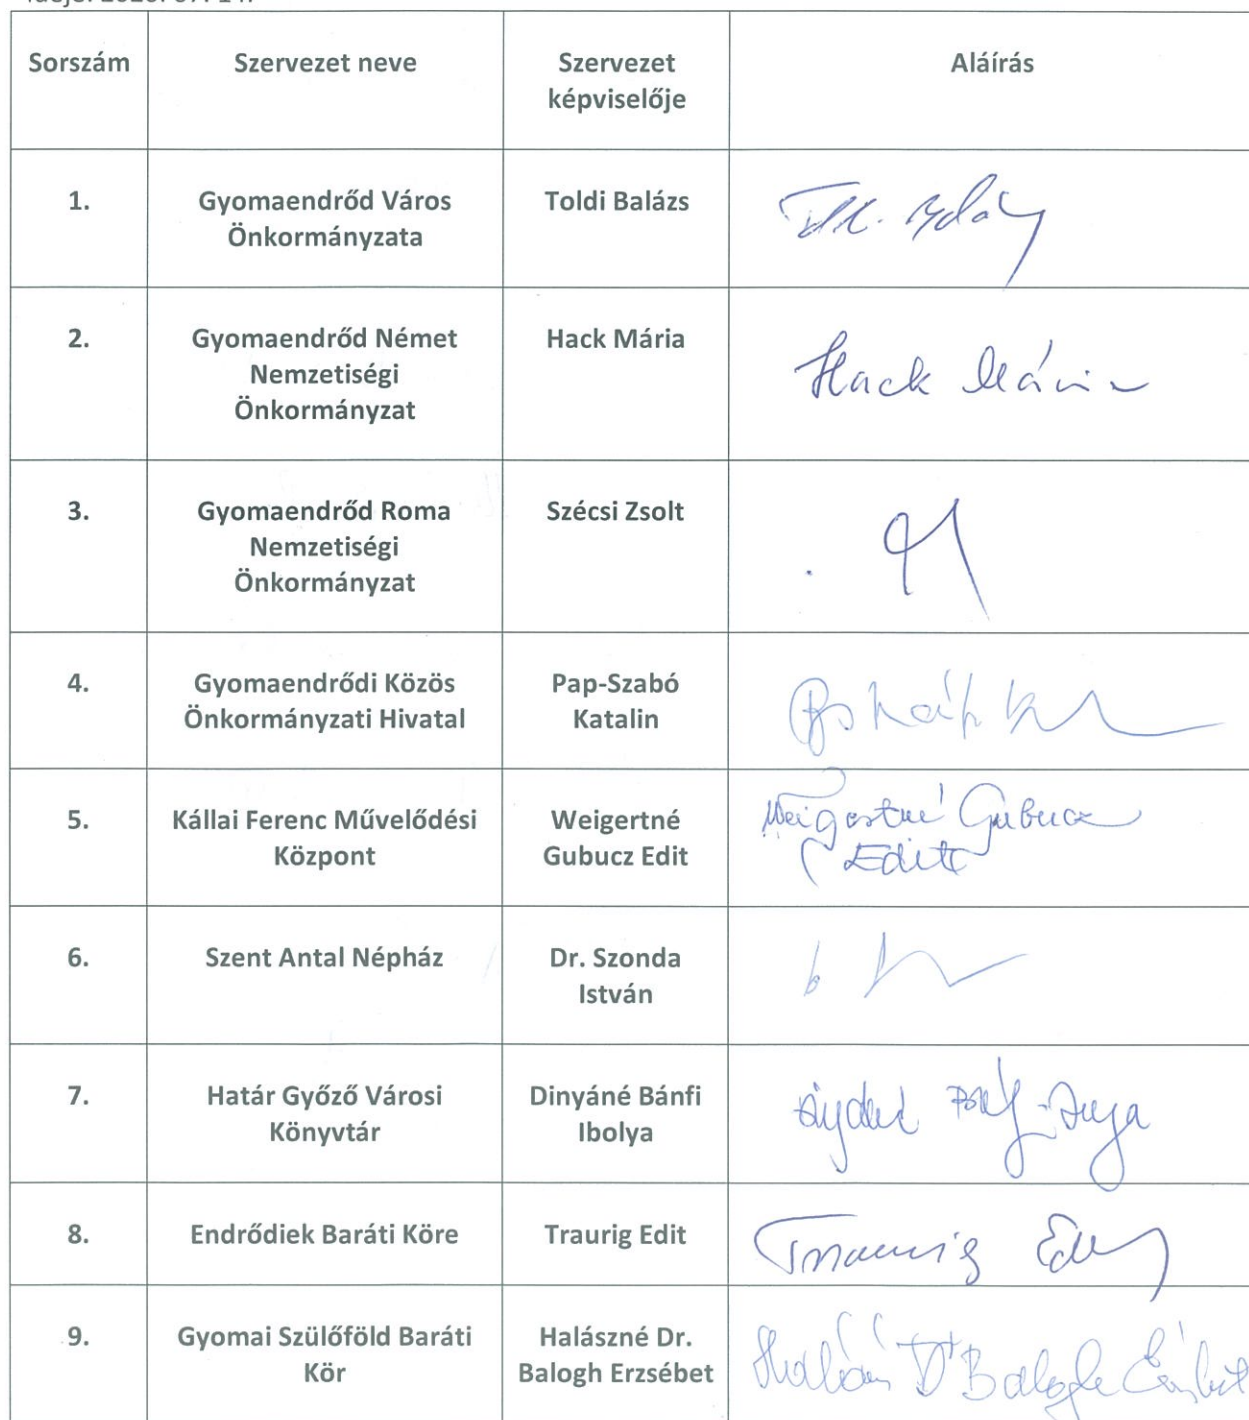 Sorszám
Szervezet neve
Szervezet
képviselője
Aláírás
1.
Gyomaendrőd Város
Önkormányzata
Toldi Balázs
2.
Gyomaendrőd Német
Nemzetiségi
Önkormányzat
Hack Mária
Hack Mária
3.
Gyomaendrőd Roma
Nemzetiségi
Önkormányzat
Szécsi Zsolt
4.
Gyomaendrődi Közös
Önkormányzati Hivatal
Pap-Szabó
Katalin
5.
Kállai Ferenc Művelődési
Központ
Weigertné
Gubucz Edit
Weigertné Gubucz
Edit
6.
Szent Antal Népház
Dr. Szonda
István
7.
Határ Győző Városi
Könyvtár
Dinyáné Bánfi
Ibolya
8.
Endrődiek Baráti Köre
Traurig Edit
Traurig Edit
9.
Gyomai Szülőföld Baráti
Kör
Halászné Dr.
Balogh Erzsébet
Dr Balogh